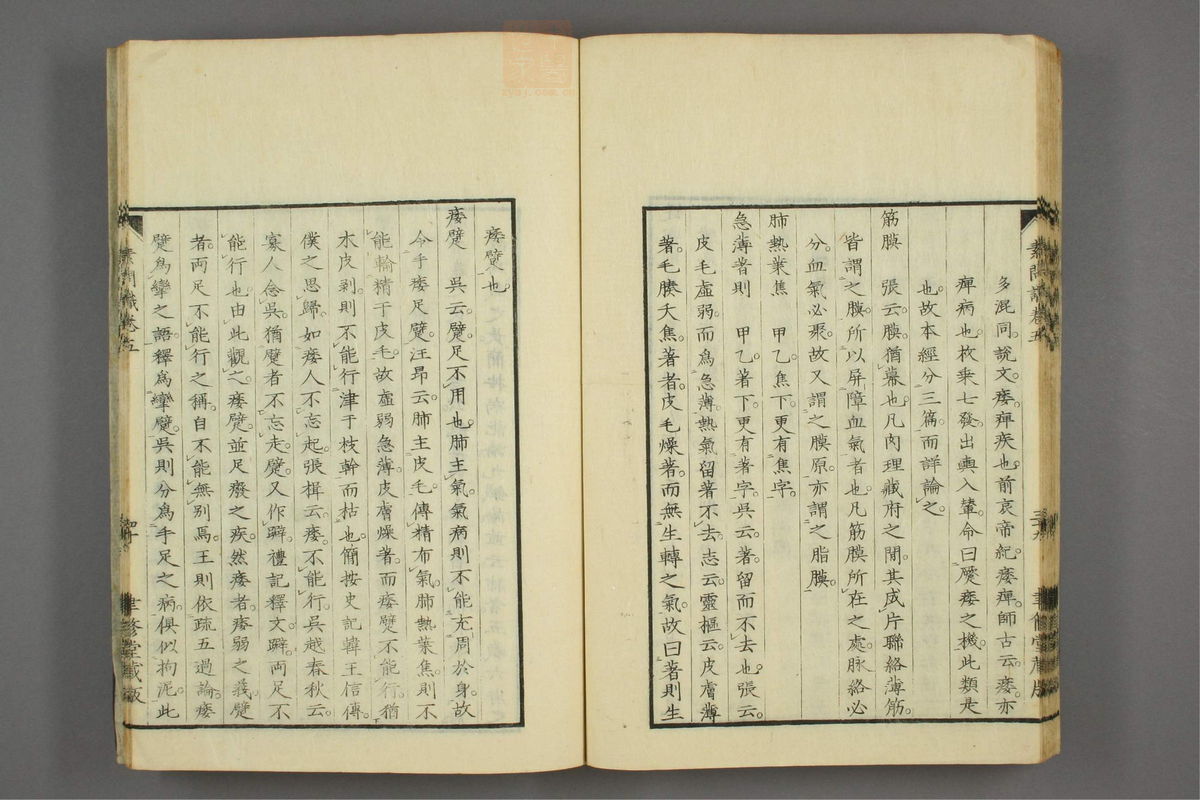 多混同。說文。痿。痺疾也。前哀帝紀。痿痺。師古云。痿。亦
痺病也。枚乘七發。出輿入輦。命曰蹷痿之機。此類是
也。故本經分三篇。而詳論之。
筋膜 張云。膜。猶幕也。凡肉理藏府之間。其成片聯絡薄筋。
皆謂之膜。所以屏障血氣者也。凡筋膜所在之處。脉絡必
分。血氣必聚。故又謂之膜原。亦謂之脂膜。
肺熱葉焦 甲乙。焦下。更有焦字。
急薄著則 甲乙。著下。更有著字。吳云。著。留而不去也。張云。
皮毛虛弱。而為急薄。熱氣留著不去。志云。靈樞云。皮膚薄
著。毛腠夭焦。著者。皮毛燥著。而無生轉之氣。故曰著則生
痿躄也。
痿躄 吳云。躄。足不用也。肺主氣。氣病則不能充周於身。故
令手痿足躄。汪昂云。肺主皮毛。傳精布氣。肺熱葉焦。則不
能輸精于皮毛。故虛弱急薄。皮膚燥著。而痿躄不能行。猶
木皮剥。則不能行津于枝幹而枯也。簡按史記韓王信傳。
僕之思歸。如痿人不忘起。張揖云。痿。不能行。吳越春秋云。
寡人念吳。猶躄者不忘走。躄。又作躃。禮記釋文。躃。兩足不
能行也。由此觀之。痿躄並足癈之疾。然痿者。痿弱之義。躄
者。兩足不能行之稱。自不能無別焉。王則依疏五過論。痿
躄為攣之語。釋為攣躄。吳則分為手足之病。俱似拘泥。此
素問識卷五
三十九
聿修堂藏版
素問識卷五
四十
聿修堂藏版
zysj.com.cn